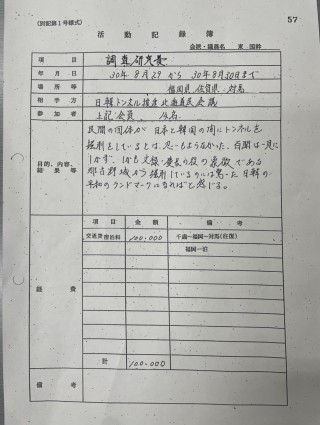 57
(別記第1号様式)
活動記録簿
会派・議員名 東 国幹
項目 調査研究費
年月日等 30年8月29から 30年8月30日まで
場所等 福岡県 佐賀県・対馬
相手方 日韓トンネル推進北海道民会議
参加者 上記・会員
目的、内容、結果等
民間の団体が日本と韓国の間にトンネルを
掘削をしているとは、思ってもみなかった。百聞は一見に
しかず、しかも文禄・慶長の役の象徴である
名古屋城から掘削しているのには驚いた。日韓の
平和のランドマークになればと感じる。
経費
項目 金額 備考
交通費 宿泊料 100,000 千歳ー福岡ー対馬(往復)
福岡一泊
計 100,000
備考